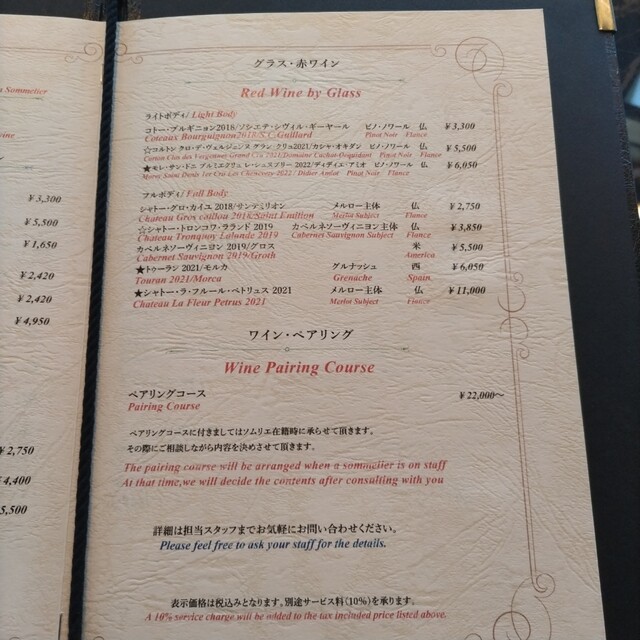 a Sommelier
wine
¥3,300
¥5,500
¥1,650
¥2,420
¥2,420
¥4,950
¥2,750
¥4,400
5,500
グラス・赤ワイン
Red Wine by Glass
ライトボディ/ Light Body
コトー・ブルギニョン2018/ソシエテ・シヴィル・ギーヤール ピノ・ノワール 仏 ¥3,300
Coteaux Bourguignon2018/S.C.Guillard Pinot Noir Flance
☆コルトン クロ・デ・ヴェルジェンヌ グラン・クリュ2021/カシャ・オキダン ピノ・ノワール 仏 ¥5,500
Corton Clos des Vergennes Grand Cru 2021/Domaine Cachat-Ocquidant Pinot Noir Flance
★モレ・サン・ドニ プルミエクリュ レ・シュスブリー 2022/ディディエ・アミオ ピノ・ノワール 仏 ¥6,050
Morey Saint Denis 1er Cru Les Chesevery 2022 / Didier Amiot Pinot Noir Flance
フルボディ/ Full Body
シャトー・グロ・カイユ 2018/サンテミリオン メルロー主体 仏 ¥2,750
Chateau Gros caillou 2018/Saint Emillion Merlot Subject Flance
☆シャトー・トロンコワ・ラランド 2019 カベルネソーヴィニヨン主体 仏 ¥3,850
Chateau Tronquoy Lalande 2019 Cabernet Sauvignon Subject Flance
カベルネソーヴィニヨン 2019/グロス 米 ¥5,500
Cabernet Sauvignon 2019/Groth America
★トゥーラン 2021/モルカ グルナッシュ 西 ¥6,050
Touran 2021/Morca Grenache Spain
★シャトー・ラ・フルール・ペトリュス 2021 メルロー主体 仏 ¥11,000
Chateau La Fleur Petrus 2021 Merlot Subject Flance
ワイン・ペアリング
Wine Pairing Course
ペアリングコース ¥22,000～
Pairing Course
ペアリングコースに付きましてはソムリエ在籍時に承らせて頂きます。
その際にご相談しながら内容を決めさせて頂きます。
The pairing course will be arranged when a sommelier is on staff
At that time,we will decide the contents after consulting with you
詳細は担当スタッフまでお気軽にお問い合わせください。
Please feel free to ask your staff for the details.
表示価格は税込みとなります。別途サービス料(10%)を承ります。
A 10% service charge will be added to the tax included price listed above.